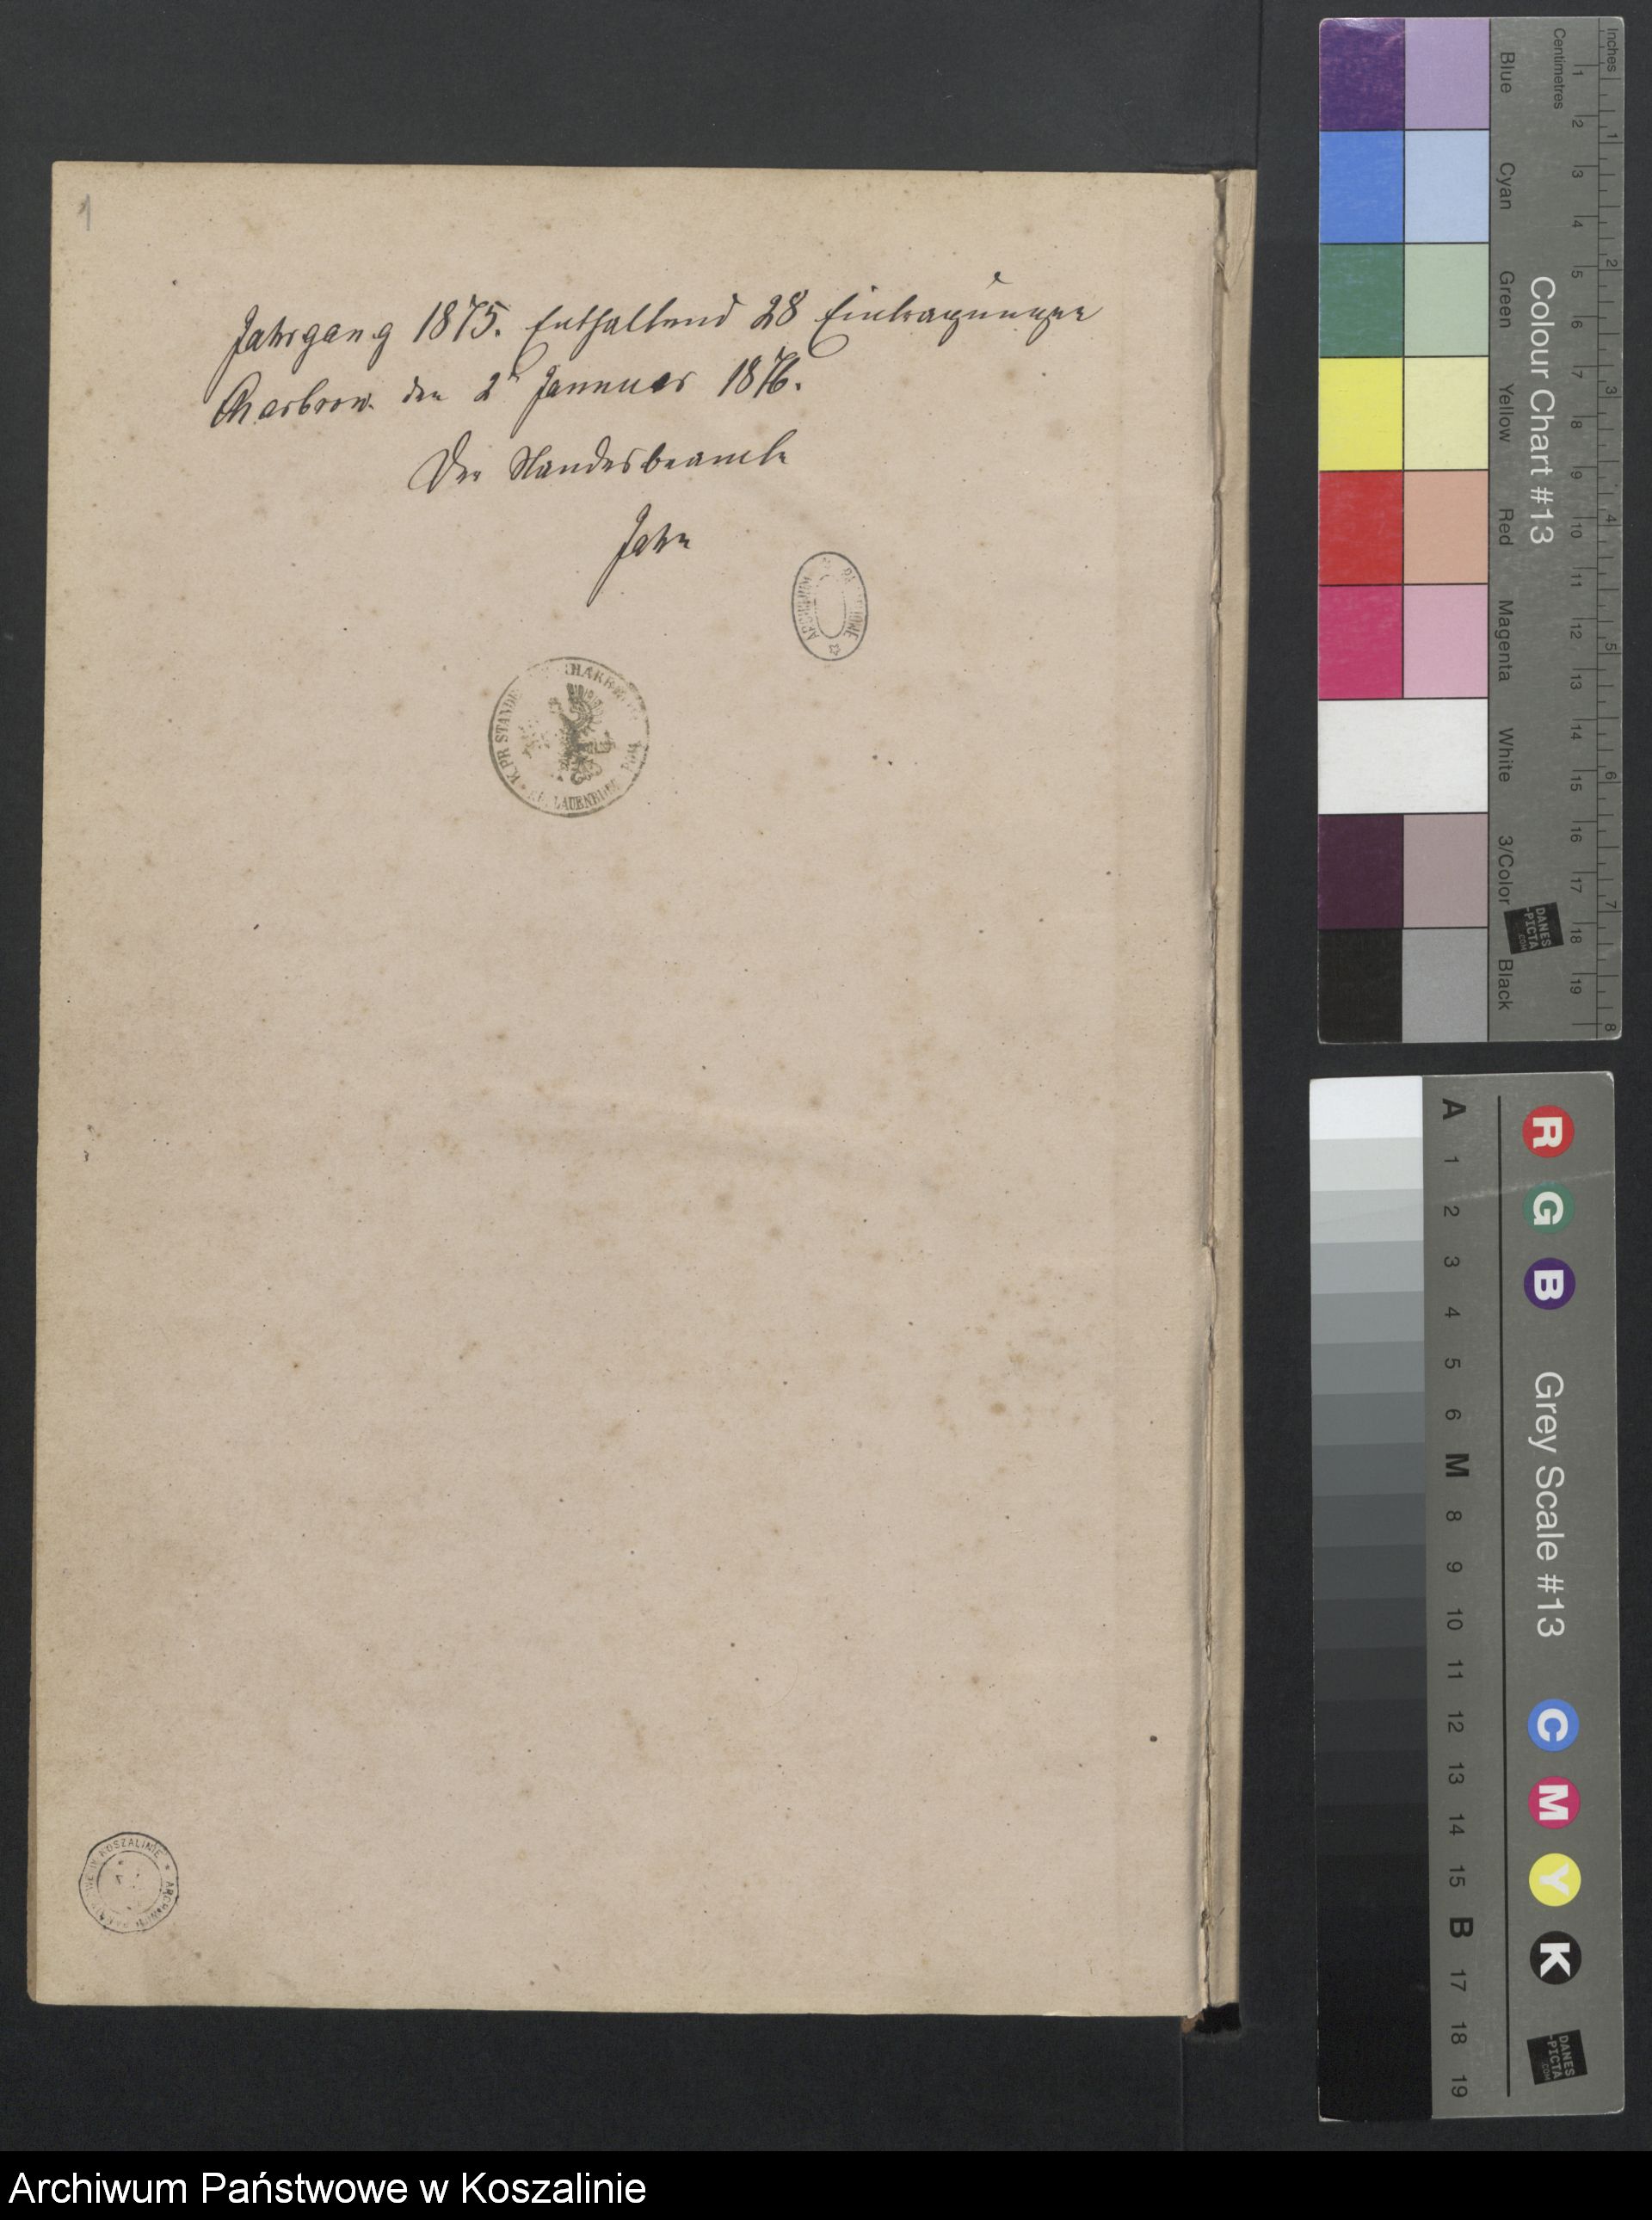 1
Jahrgang 1875. Enthaltend 28 Eintragungen
Charbrow. den 2ⁿ Januar 1876.
Der Standesbeamte
Jahn
ARCHIWUM
K. PR STANDE CHARBR
LAUENBURG POM.
KOSZALINIE * ARCHIWUM
Inches
Centimetres
1 2 3 4 5 6 7 8
1 2 3 4 5 6 7 8 9 10 11 12 13 14 15 16 17 18 19
Colour Chart #13
Blue
Cyan
Green
Yellow
Red
Magenta
White
3/Color
Black
DANES
-PICTA
.COM
R G B
Grey Scale #13
C M Y K
A 1 2 3 4 5 6 M 8 9 10 11 12 13 14 15 B 17 18 19
DANES
-PICTA
.COM
Archiwum Państwowe w Koszalinie